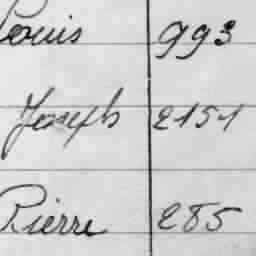 Louis 993
Joseph 2151
Pierre 285